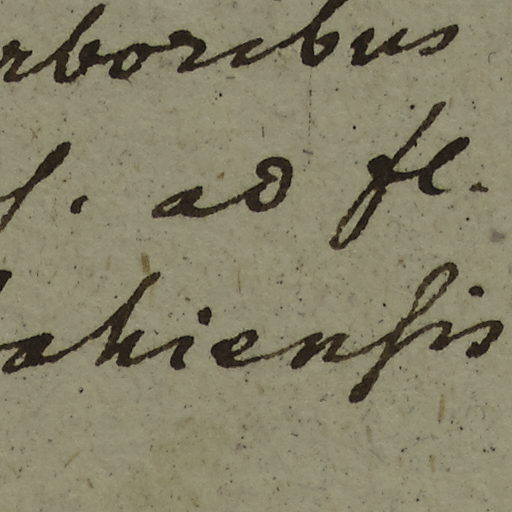 rboribus
f. ad fl.
ahiensis